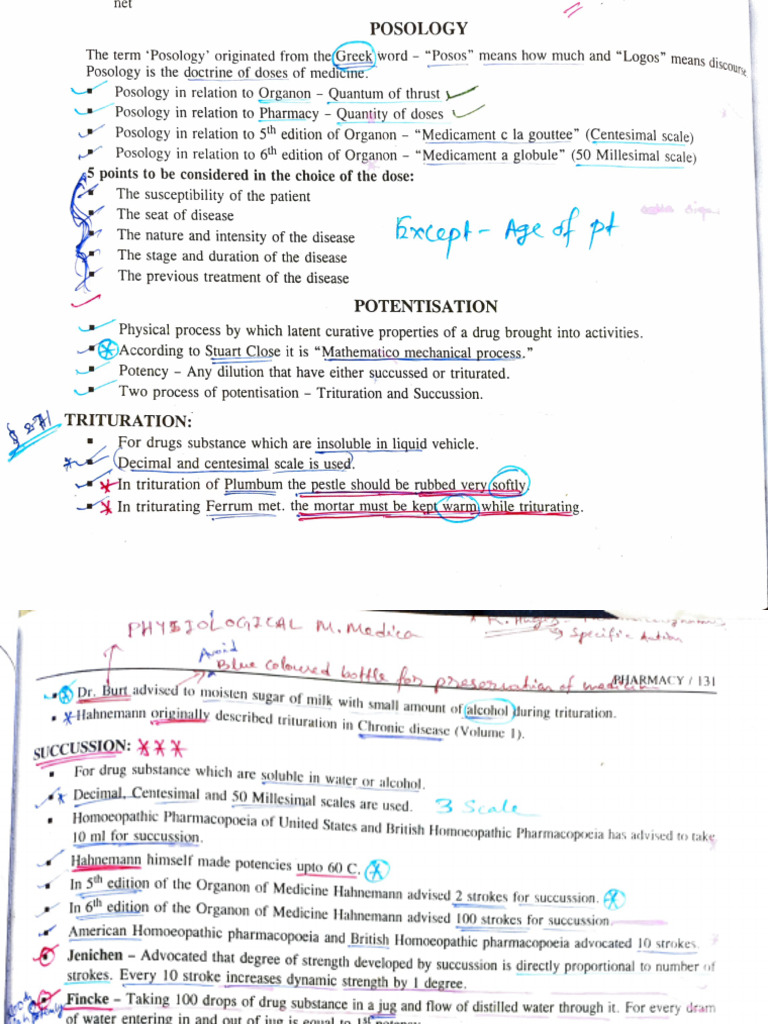 net
POSOLOGY
The term ‘Posology’ originated from the Greek word – “Posos” means how much and “Logos” means discourse
Posology is the doctrine of doses of medicine.
▪ Posology in relation to Organon – Quantum of thrust
▪ Posology in relation to Pharmacy – Quantity of doses
▪ Posology in relation to 5th edition of Organon – “Medicament c la gouttee” (Centesimal scale)
▪ Posology in relation to 6th edition of Organon – “Medicament a globule” (50 Millesimal scale)
5 points to be considered in the choice of the dose:
▪ The susceptibility of the patient
▪ The seat of disease
▪ The nature and intensity of the disease
Except – Age of pt
▪ The stage and duration of the disease
▪ The previous treatment of the disease
POTENTISATION
▪ Physical process by which latent curative properties of a drug brought into activities.
▪ According to Stuart Close it is “Mathematico mechanical process.”
▪ Potency – Any dilution that have either succussed or triturated.
▪ Two process of potentisation – Trituration and Succussion.
§ 271
TRITURATION:
▪ For drugs substance which are insoluble in liquid vehicle.
▪ Decimal and centesimal scale is used.
▪ In trituration of Plumbum the pestle should be rubbed very softly.
▪ In triturating Ferrum met. the mortar must be kept warm while triturating.
PHYSIOLOGICAL M. Medica
R. Hughes
Specific Action
Avoid
Blue coloured bottle for preservation of medicine
PHARMACY / 131
▪ Dr. Burt advised to moisten sugar of milk with small amount of alcohol during trituration.
▪ Hahnemann originally described trituration in Chronic disease (Volume 1).
SUCCUSSION:
▪ For drug substance which are soluble in water or alcohol.
▪ Decimal, Centesimal and 50 Millesimal scales are used. 3 Scale
▪ Homoeopathic Pharmacopoeia of United States and British Homoeopathic Pharmacopoeia has advised to take
10 ml for succussion.
Hahnemann himself made potencies upto 60 C.
▪ In 5th edition of the Organon of Medicine Hahnemann advised 2 strokes for succussion.
▪ In 6th edition of the Organon of Medicine Hahnemann advised 100 strokes for succussion
▪ American Homoeopathic pharmacopoeia and British Homoeopathic pharmacopoeia advocated 10 strokes.
Jenichen – Advocated that degree of strength developed by succussion is directly proportional to number of
strokes. Every 10 stroke increases dynamic strength by 1 degree.
Fincke – Taking 100 drops of drug substance in a jug and flow of distilled water through it. For every dram
of water entering in and out of jug is equal to 1st potency